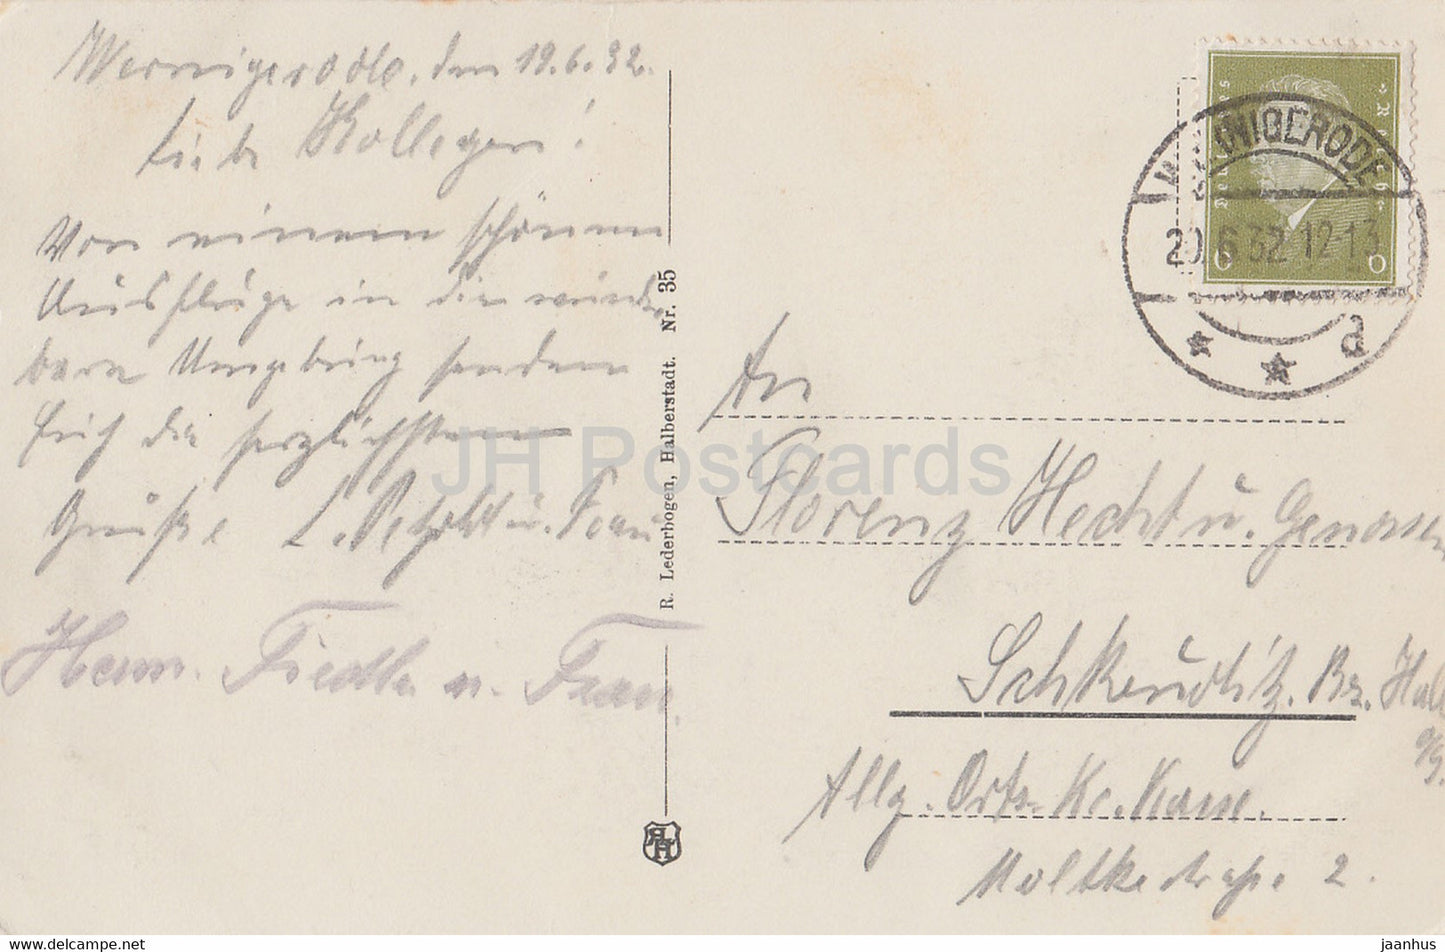 Wernigerode, den 19.6.32.
Liebe Kollegen!
Von einem schönen
Ausfluge in die wunder
bare Umgebung senden
Euch die herzlichsten
Grüße L. Petzold u. Frau
Herm. Fiedler u. Frau.
R. Lederbogen, Halberstadt. Nr. 35
RLH
Deutsches Reich
6 6
WERNIGERODE
20.6.32.12-13
* * a
An
Florenz Hecht u. Genossen
Schkeuditz. Bz. Halle
a/S.
Allg. Orts-Kr. Kasse.
Moltkestraße 2.
JH Postcards
www.delcampe.net
jaanhus